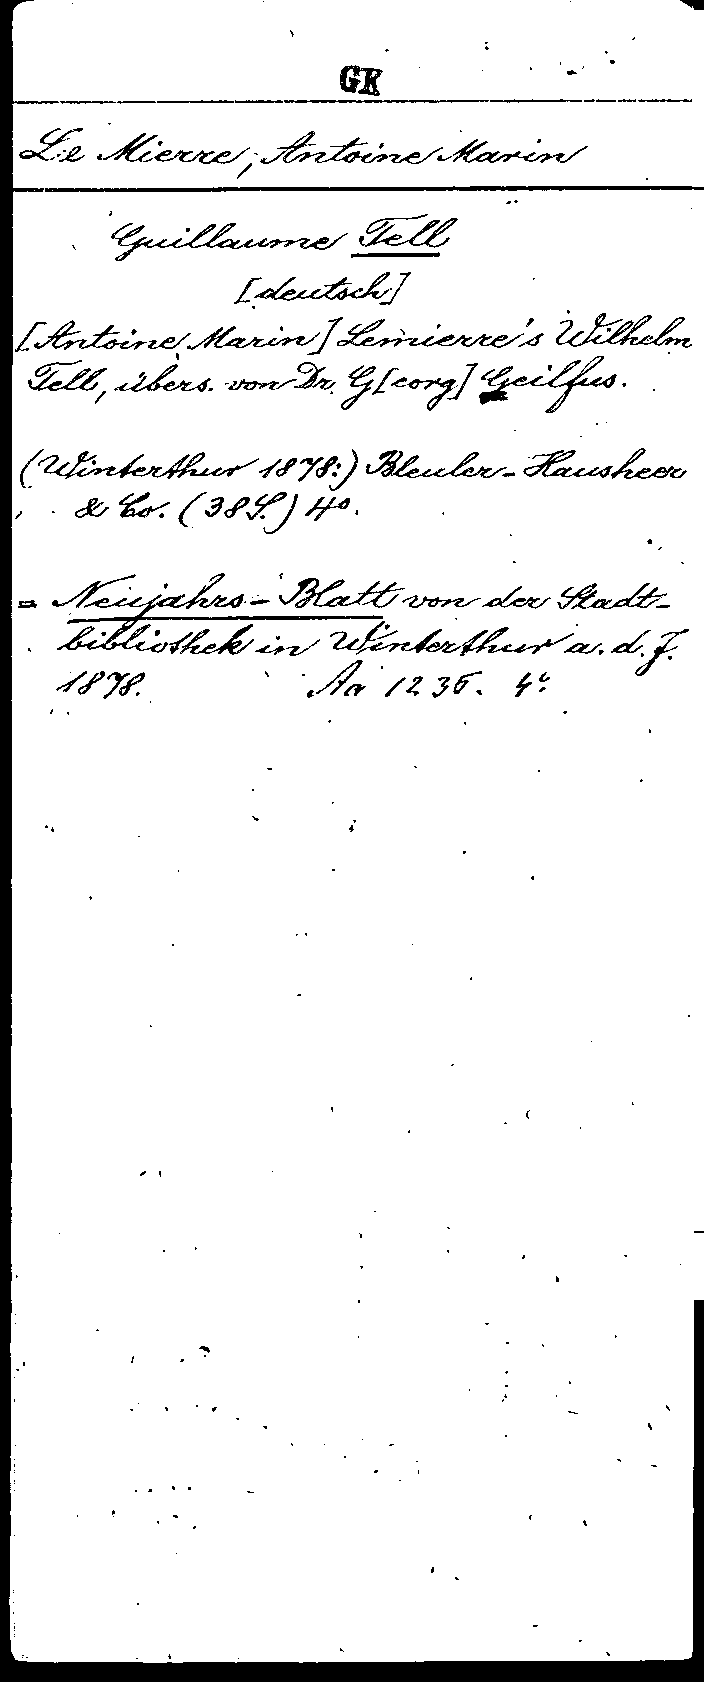 GK
Le Mierre, Antoine Marin
Guillaume Tell
[deutsch]
[Antoine Marin] Lemierre's Wilhelm
Tell, übers. von Dr. G[eorg] Geilfus.
(Winterthur 1878:) Bleuler-Hausheer
& Co. (38 S.) 4°.
= Neujahrs-Blatt von der Stadt-
bibliothek in Winterthur a. d. J.
1878. Aa 1235. 4°.